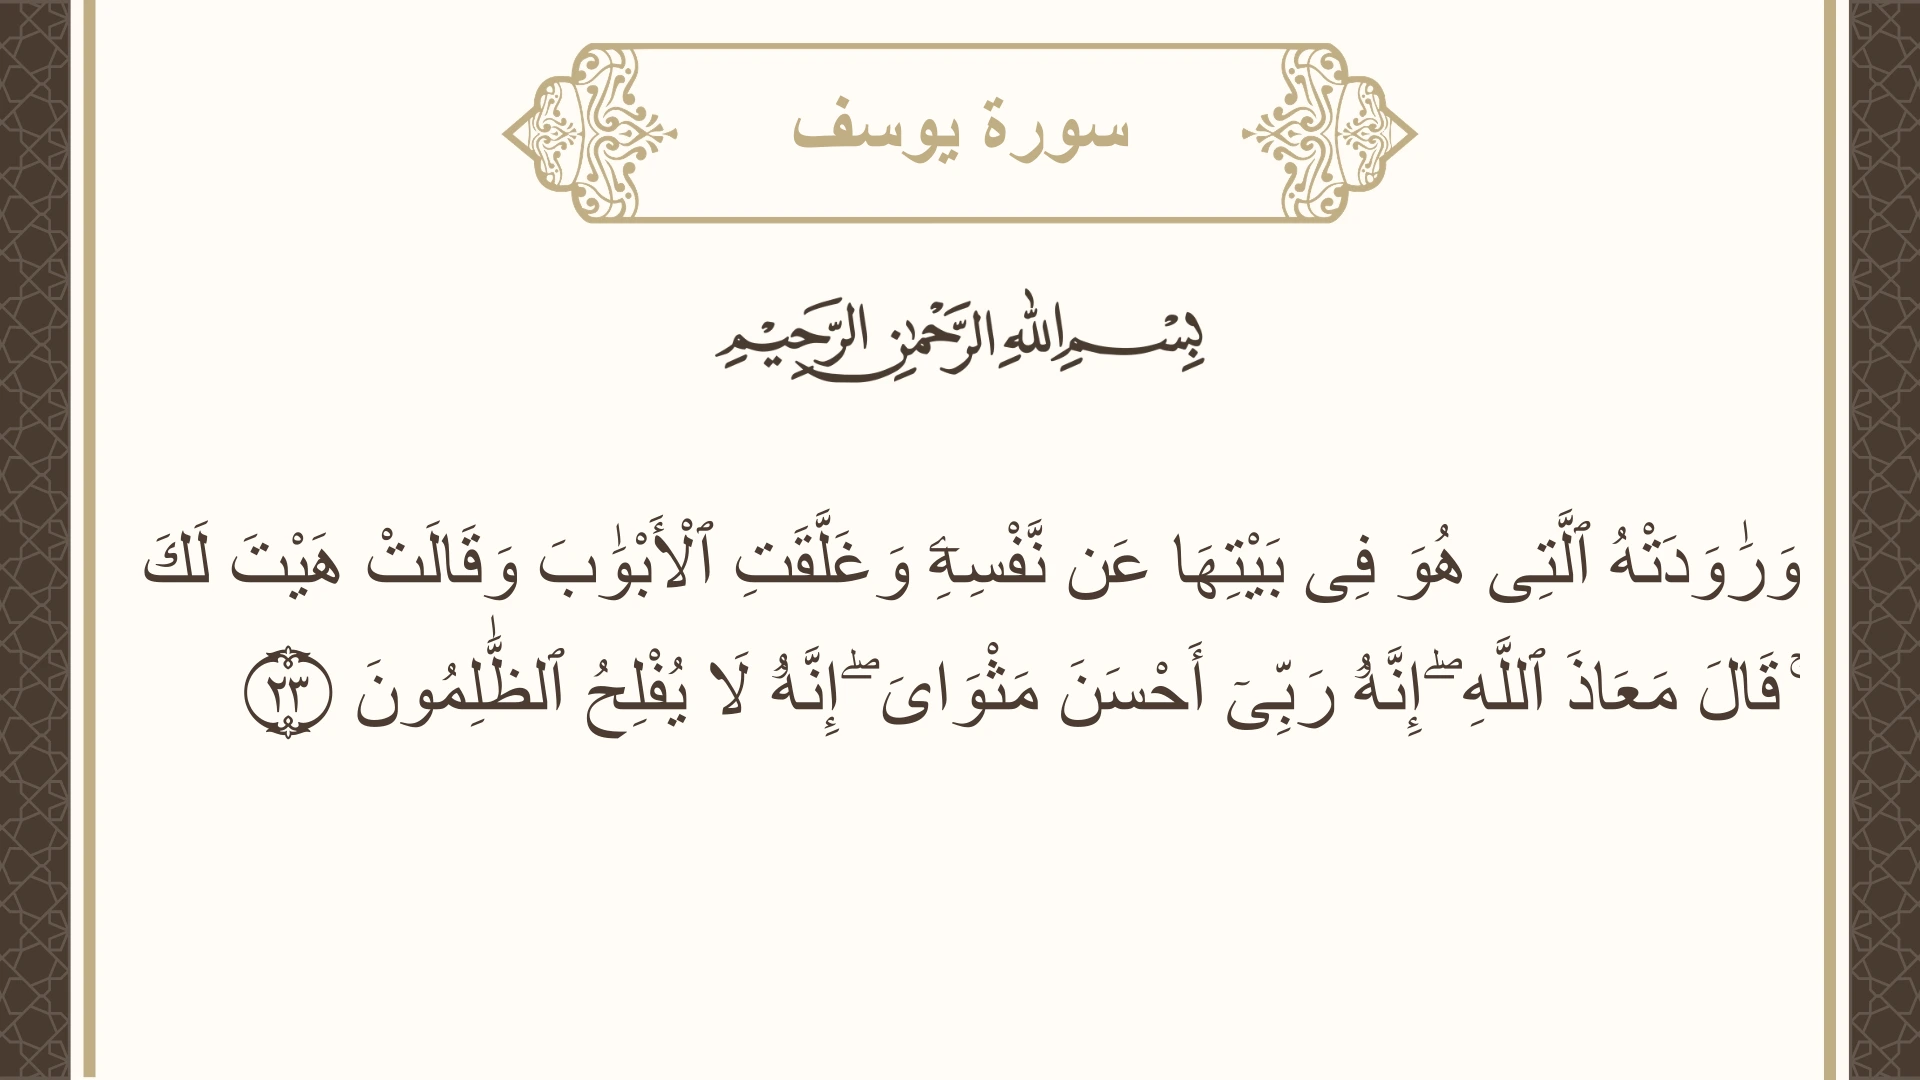 سورة يوسف
بِسْمِ اللهِ الرَّحْمٰنِ الرَّحِيْمِ
وَرَٰوَدَتْهُ ٱلَّتِى هُوَ فِى بَيْتِهَا عَن نَّفْسِهِۦ وَغَلَّقَتِ ٱلْأَبْوَٰبَ وَقَالَتْ هَيْتَ لَكَ
ۚ قَالَ مَعَاذَ ٱللَّهِ ۖ إِنَّهُۥ رَبِّىٓ أَحْسَنَ مَثْوَاىَ ۖ إِنَّهُۥ لَا يُفْلِحُ ٱلظَّٰلِمُونَ ٢٣